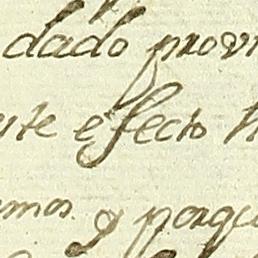 dado provi
nte efecto
mos y porque